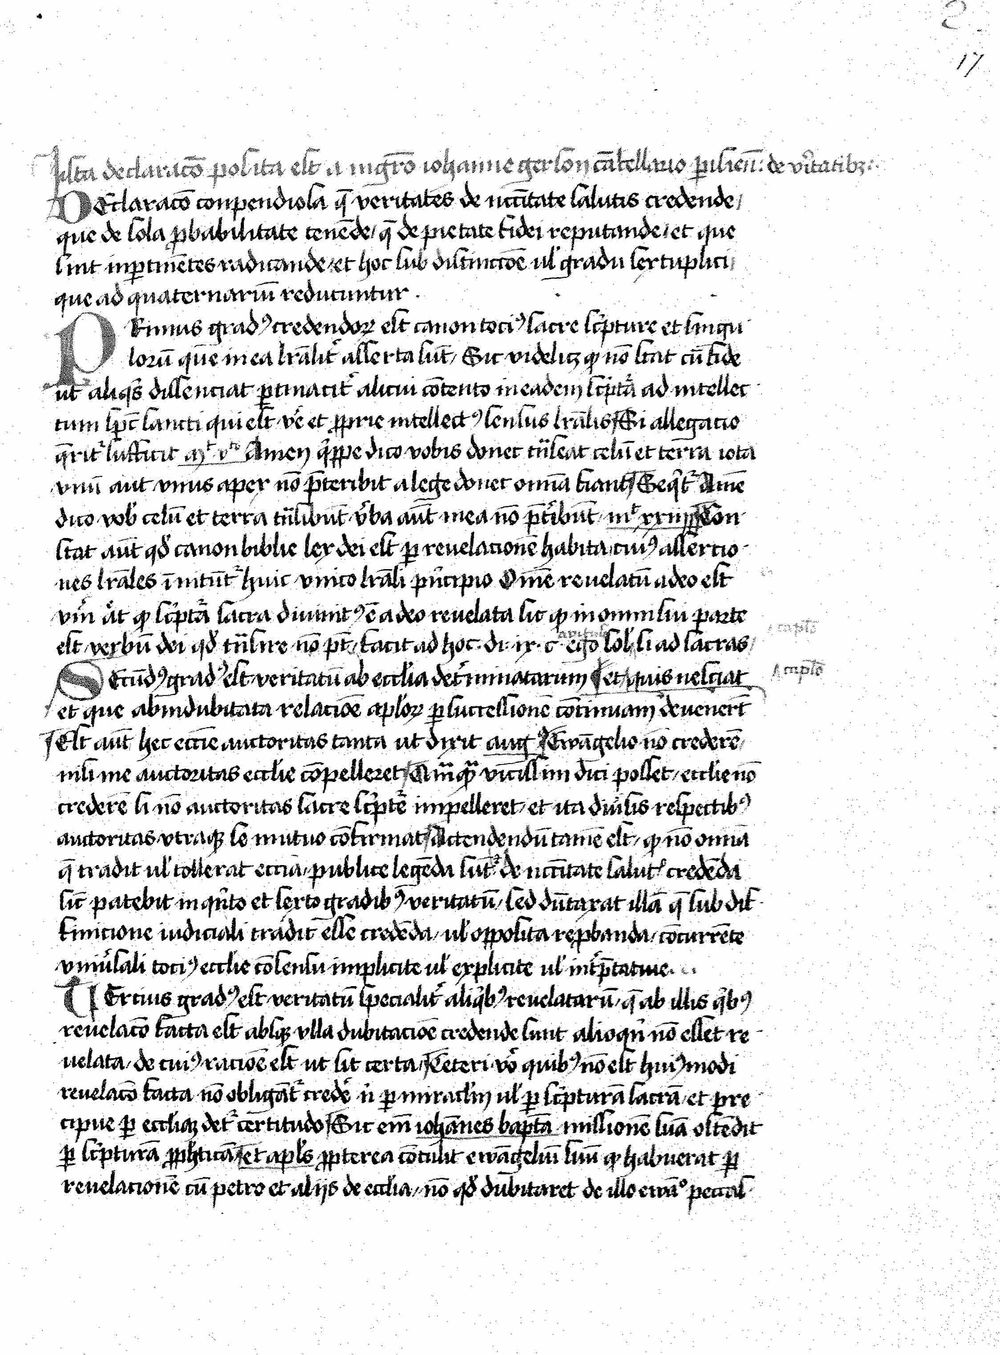 2
17
Ista declaracõ posita est a mgrõ iohanne gerson cãcellario parisieñ: de vĩtatibꝫ.
DEclaracõ conpendiosa q̃ veritates de nccitate salutis credende /
que de sola ꝓbabilitate tenẽde / q̃ de pietate fidei reputande / et que
sint inꝑtinẽtes radicande / et hoc sub distinctiõe ul' gradu sextuplici
que ad quaternariũ reducuntur .
PRimus gradꝰ credendoꝝ est canon tociꝰ sacre sc̃pture et singu
lorũ que in ea lr̃alit' asserta sũt / Sic videlicꝫ ꝙ nõ stat cũ fide
ut aliqs̃ dissenciat ꝑtinacit' alicui cõtento in eadem sc̃ptã ad intellec
tum sp̃c sancti qui est vẽ et ꝓprie intellectꝰ sensus lr̃alis / Si allegacio
q̃rit' sufficit mt̃ vto Amen q̃ppe dico vobis donec trãseat celũ et terra iota
vnũ aut vnus apex nõ p̃teribit a lege donec omnia fiant / Seqt̃' Amẽ
dico vob' celũ et terra trãsibũt v̾ba aũt mea nõ p̃t'ibũt / mt̃ xxiiij Con
stat aũt qđ canon biblie lex dei est ꝑ revelacionẽ habita / cuiꝰ assercio
nes lr̃ales innitũt' huic vnico lr̃ali pñcipio Omẽ revelatũ a deo est
vm̃ at̃ ꝙ sc̃ptã sacra divinitꝰ ẽ a deo revelata sic ꝙ in omni sui parte
est verbũ dei qđ trãsire nõ pt̃ / facit ad hoc . di . ix . c . ego sol' si ad sacras /
capł'o
SEcũdꝰ gradꝰ est veritatũ ab ecclia det'minatarum / et quis nesciat
capł'o
et que ab indubitata relaciõe aploꝝ ꝑ successionẽ cõtinuam devenert̃
Est aũt hec eccie auctoritas tanta ut dixit aug Ewãgelio nõ crederẽ /
nisi me auctoritas ecclie cõpelleret / Qmq̃ vicissim dici posset / ecclie nõ
crederẽ si nõ auctoritas sacre sc̃pte impelleret / et ita div̾sis respectibꝰ
auctoritas vtraqꝫ se mutuo cõfirmat / Actendendũ tamẽ est / ꝙ nõ omnia
q̃ tradit ul' tollerat eccia / publice legẽda sũt de nccitate salut' credẽda
sic̃ patebit in qñto et sexto gradibꝰ veritatũ / sed dũtaxat illã q̃ sub dif
finicione iudiciali tradit esse credẽda / ul' opposita reꝓbanda / cõcurrẽte
vniv̾sali tociꝰ ecclie cõsensu implicite ul' explicite ul' int'p̃tative . .
TErcius gradꝰ est veritatũ specialit' aliq̃bꝰ revelatarũ / q̃ ab illis q̃bꝰ
revelacõ facta est absqꝫ vlla dubitaciõe credende sunt alioqñ nõ esset re
velata / de cuiꝰ raciõe est ut sit certa / Ceteri vo quibꝰ nõ est huiꝰmodi
revelacõ facta nõ obligãt' credẽ ñ ꝑ miracl'm ul' ꝑ sc̃pturã sacrã / et pre
cipue ꝑ eccliaꝫ det' certitudo / Sic em iohãnes bapta missionẽ suã ostẽdit
ꝑ sc̃pturã ꝓphticã / et apl's ꝓpterea cõtulit ewãgeliũ suũ ꝙ habuerat ꝑ
revelacionẽ cũ petro et alijs de ecclia / nõ qđ dubitaret de illo ewã° peccas